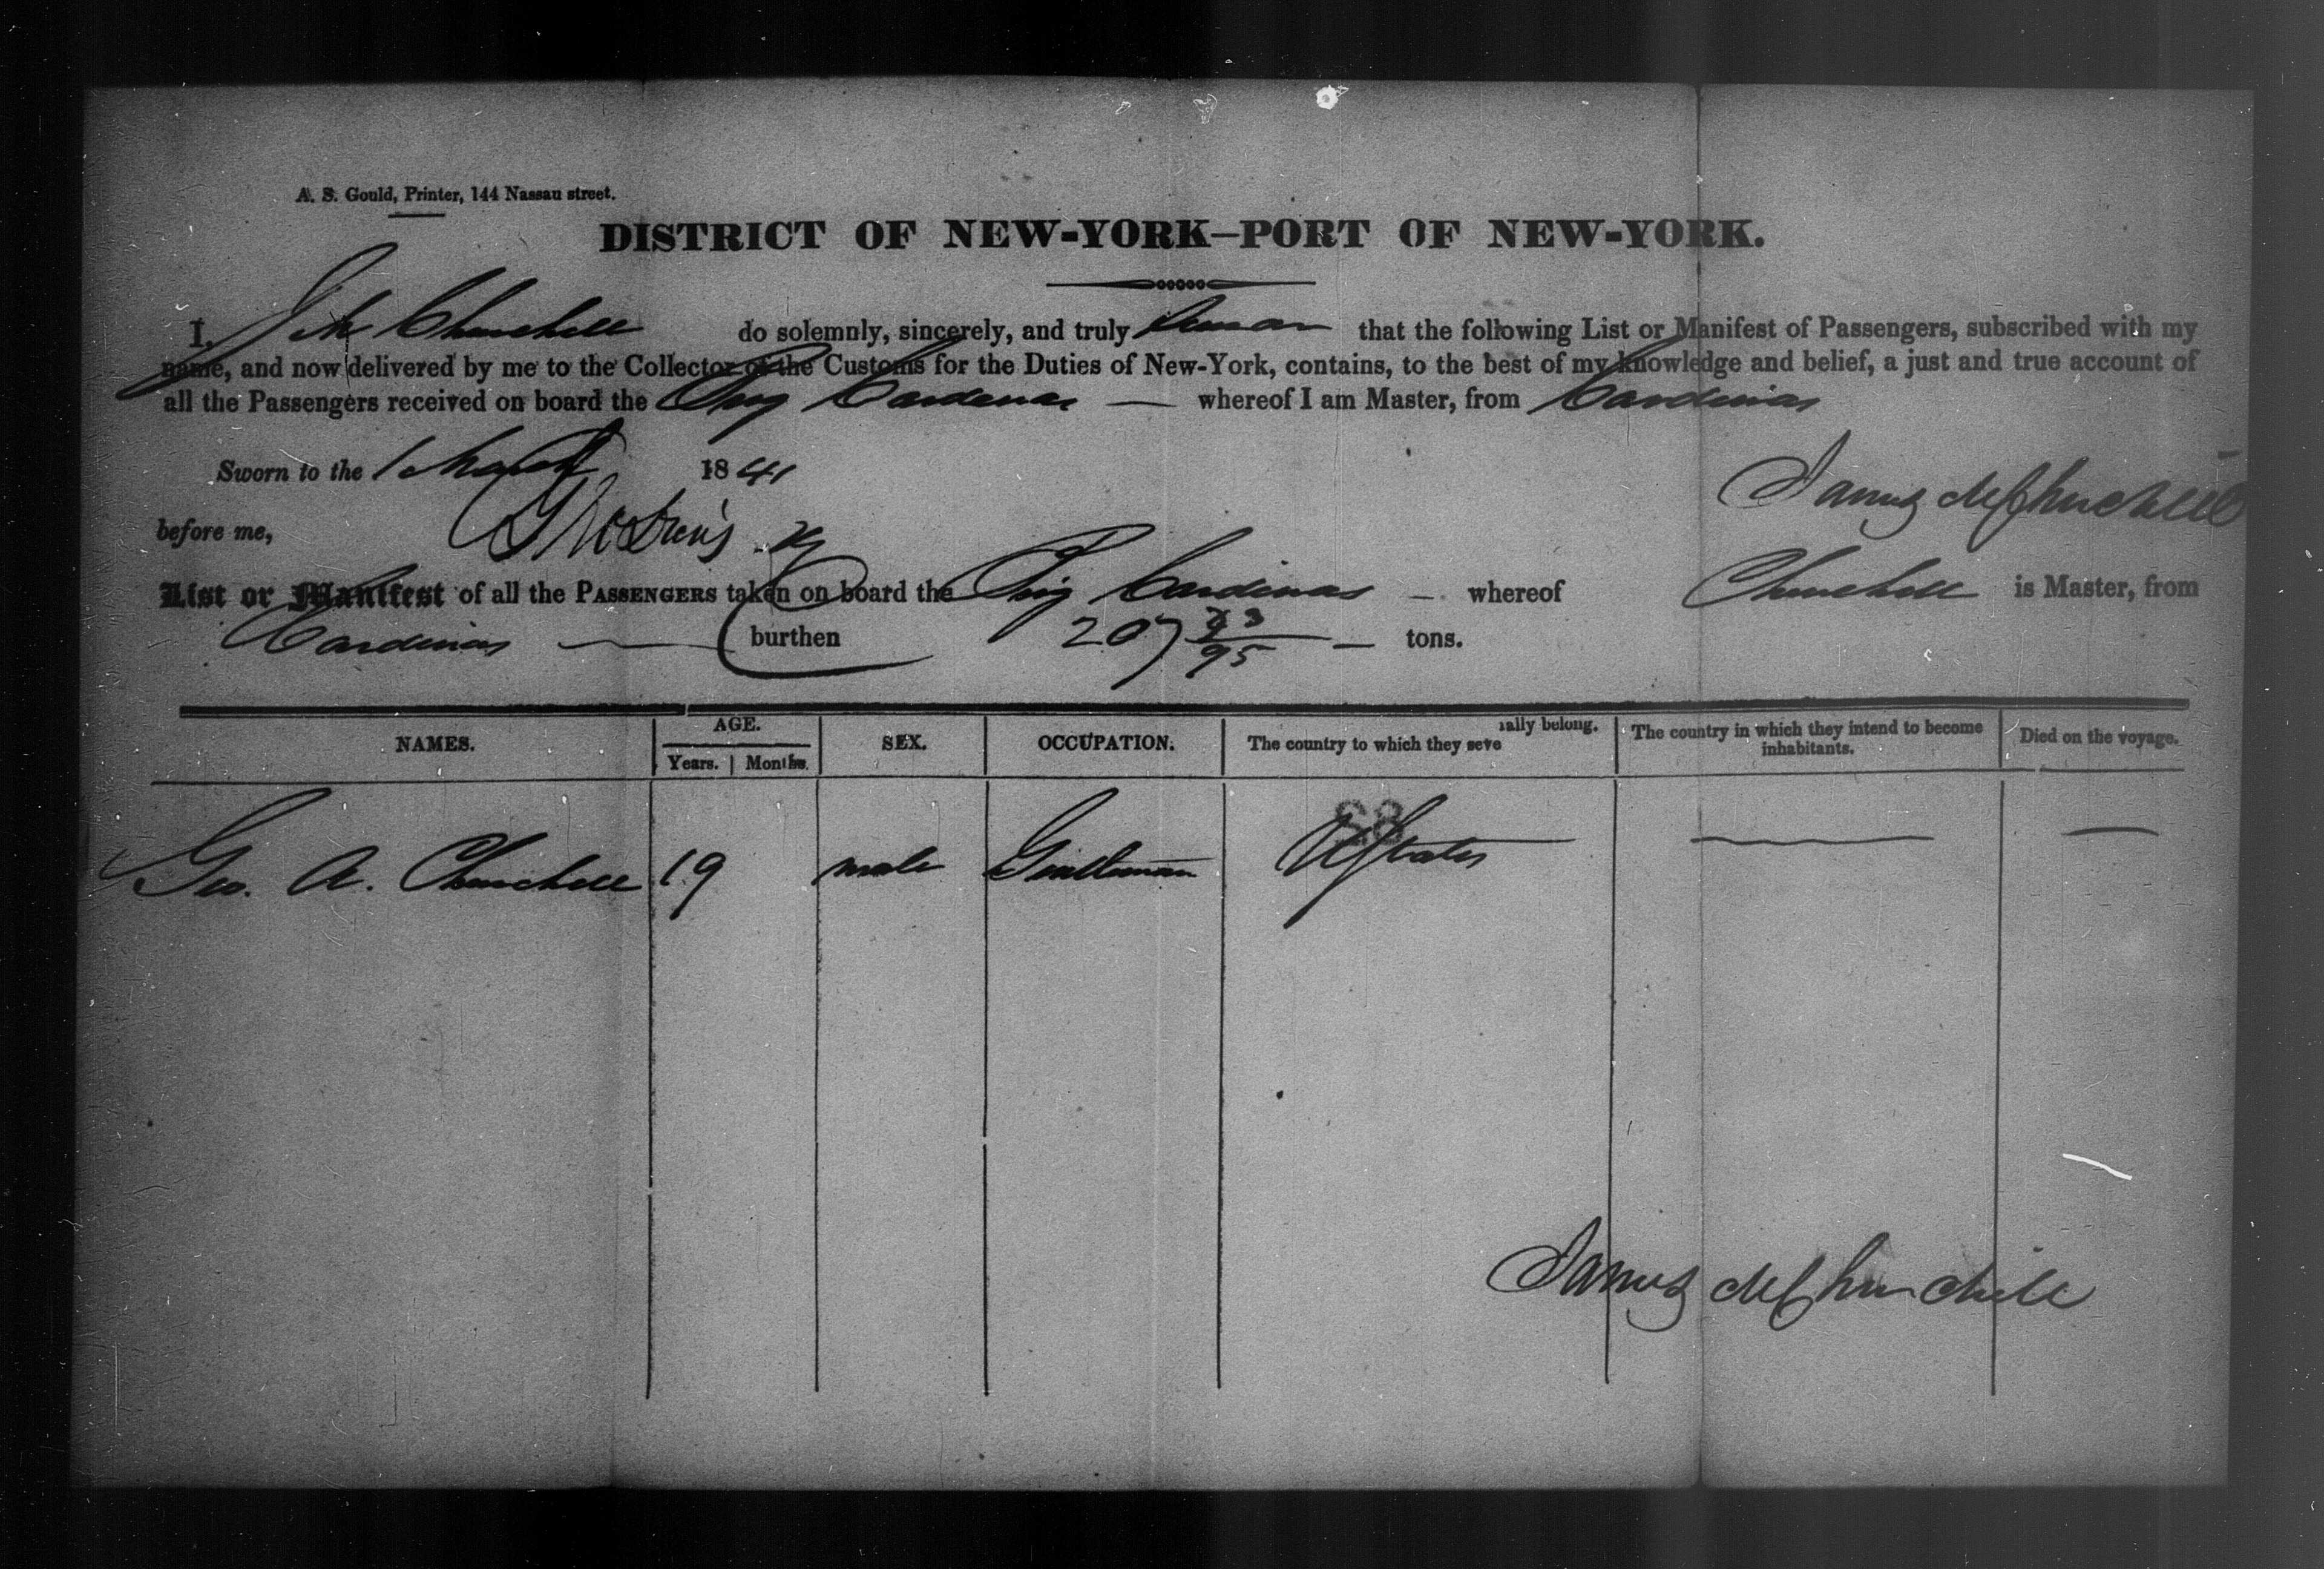 A. S. Gould, Printer, 144 Nassau street.
DISTRICT OF NEW-YORK—PORT OF NEW-YORK.
I, J M Churchill do solemnly, sincerely, and truly swear that the following List or Manifest of Passengers, subscribed with my
name, and now delivered by me to the Collector of the Customs for the Duties of New-York, contains, to the best of my knowledge and belief, a just and true account of
all the Passengers received on board the Brig Cardenas — whereof I am Master, from Cardenas
Sworn to the 1 March 1841
James M Churchill
before me,
List or Manifest of all the PASSENGERS taken on board the Brig Cardenas — whereof Churchill is Master, from
Cardenas — burthen 207 23/95 — tons.
NAMES. AGE. SEX. OCCUPATION. The country to which they seve rally belong. The country in which they intend to become inhabitants. Died on the voyage.
Years. Months.
68
Geo. A. Churchill 19 male Gentleman U States — —
James M Churchill